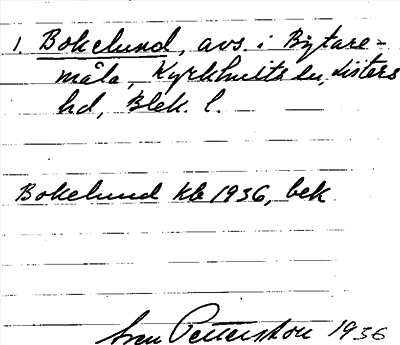 1. Bokelund, avs. i Bytare-
måla, Kyrkhults sn, Listers
hd, Blek. l.
Bokelund kb 1936, bek
Sven Petterson 1936